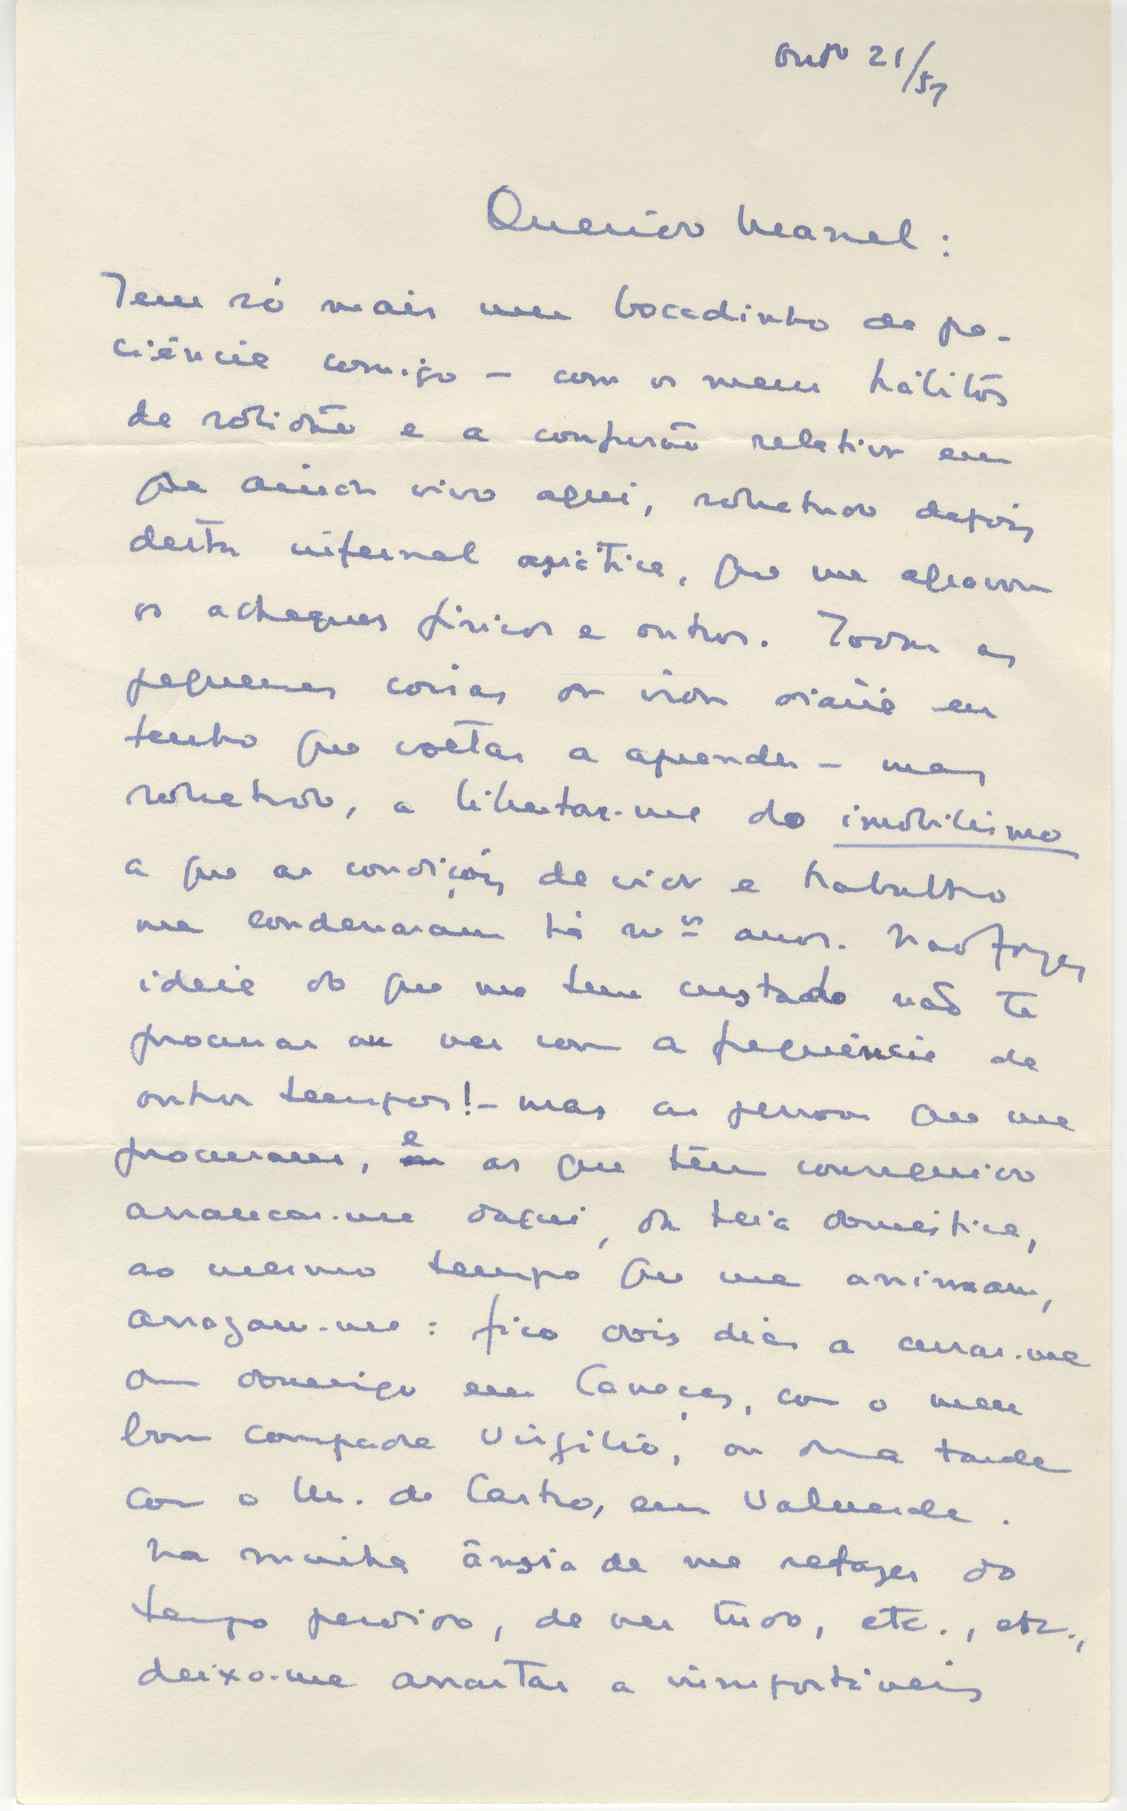 Outº 21/57
Querido Manel:
Tem só mais um bocadinho de pa-
ciência comigo – com os meus hábitos
de solidão e a confusão relativa em
que ainda vivo aqui, sobretudo depois
desta infernal asiática, que me agravou
os achaques físicos e outros. Todas as
pequenas coisas da vida diária eu
tenho que voltar a aprender – mas
sobretudo, a libertar-me do imobilismo
a que as condições de vida e trabalho
me condenaram há mᵗᵒˢ anos. Não fazes
ideia do que me tem custado não te
procurar ou ver com a frequência de
outros tempos! – mas as pessoas que me
procuram, e as que têm conseguido
arrancar-me daqui, da teia doméstica,
ao mesmo tempo que me animam,
arrasam-me: fico dois dias a curar-me
dum domingo em Caneças, com o meu
bom compadre Virgílio, ou duma tarde
com o M. de Castro, em Valverde.
Na minha ânsia de me refazer do
tempo perdido, de ver tudo, etc., etc.,
deixo-me arrastar a insuportáveis